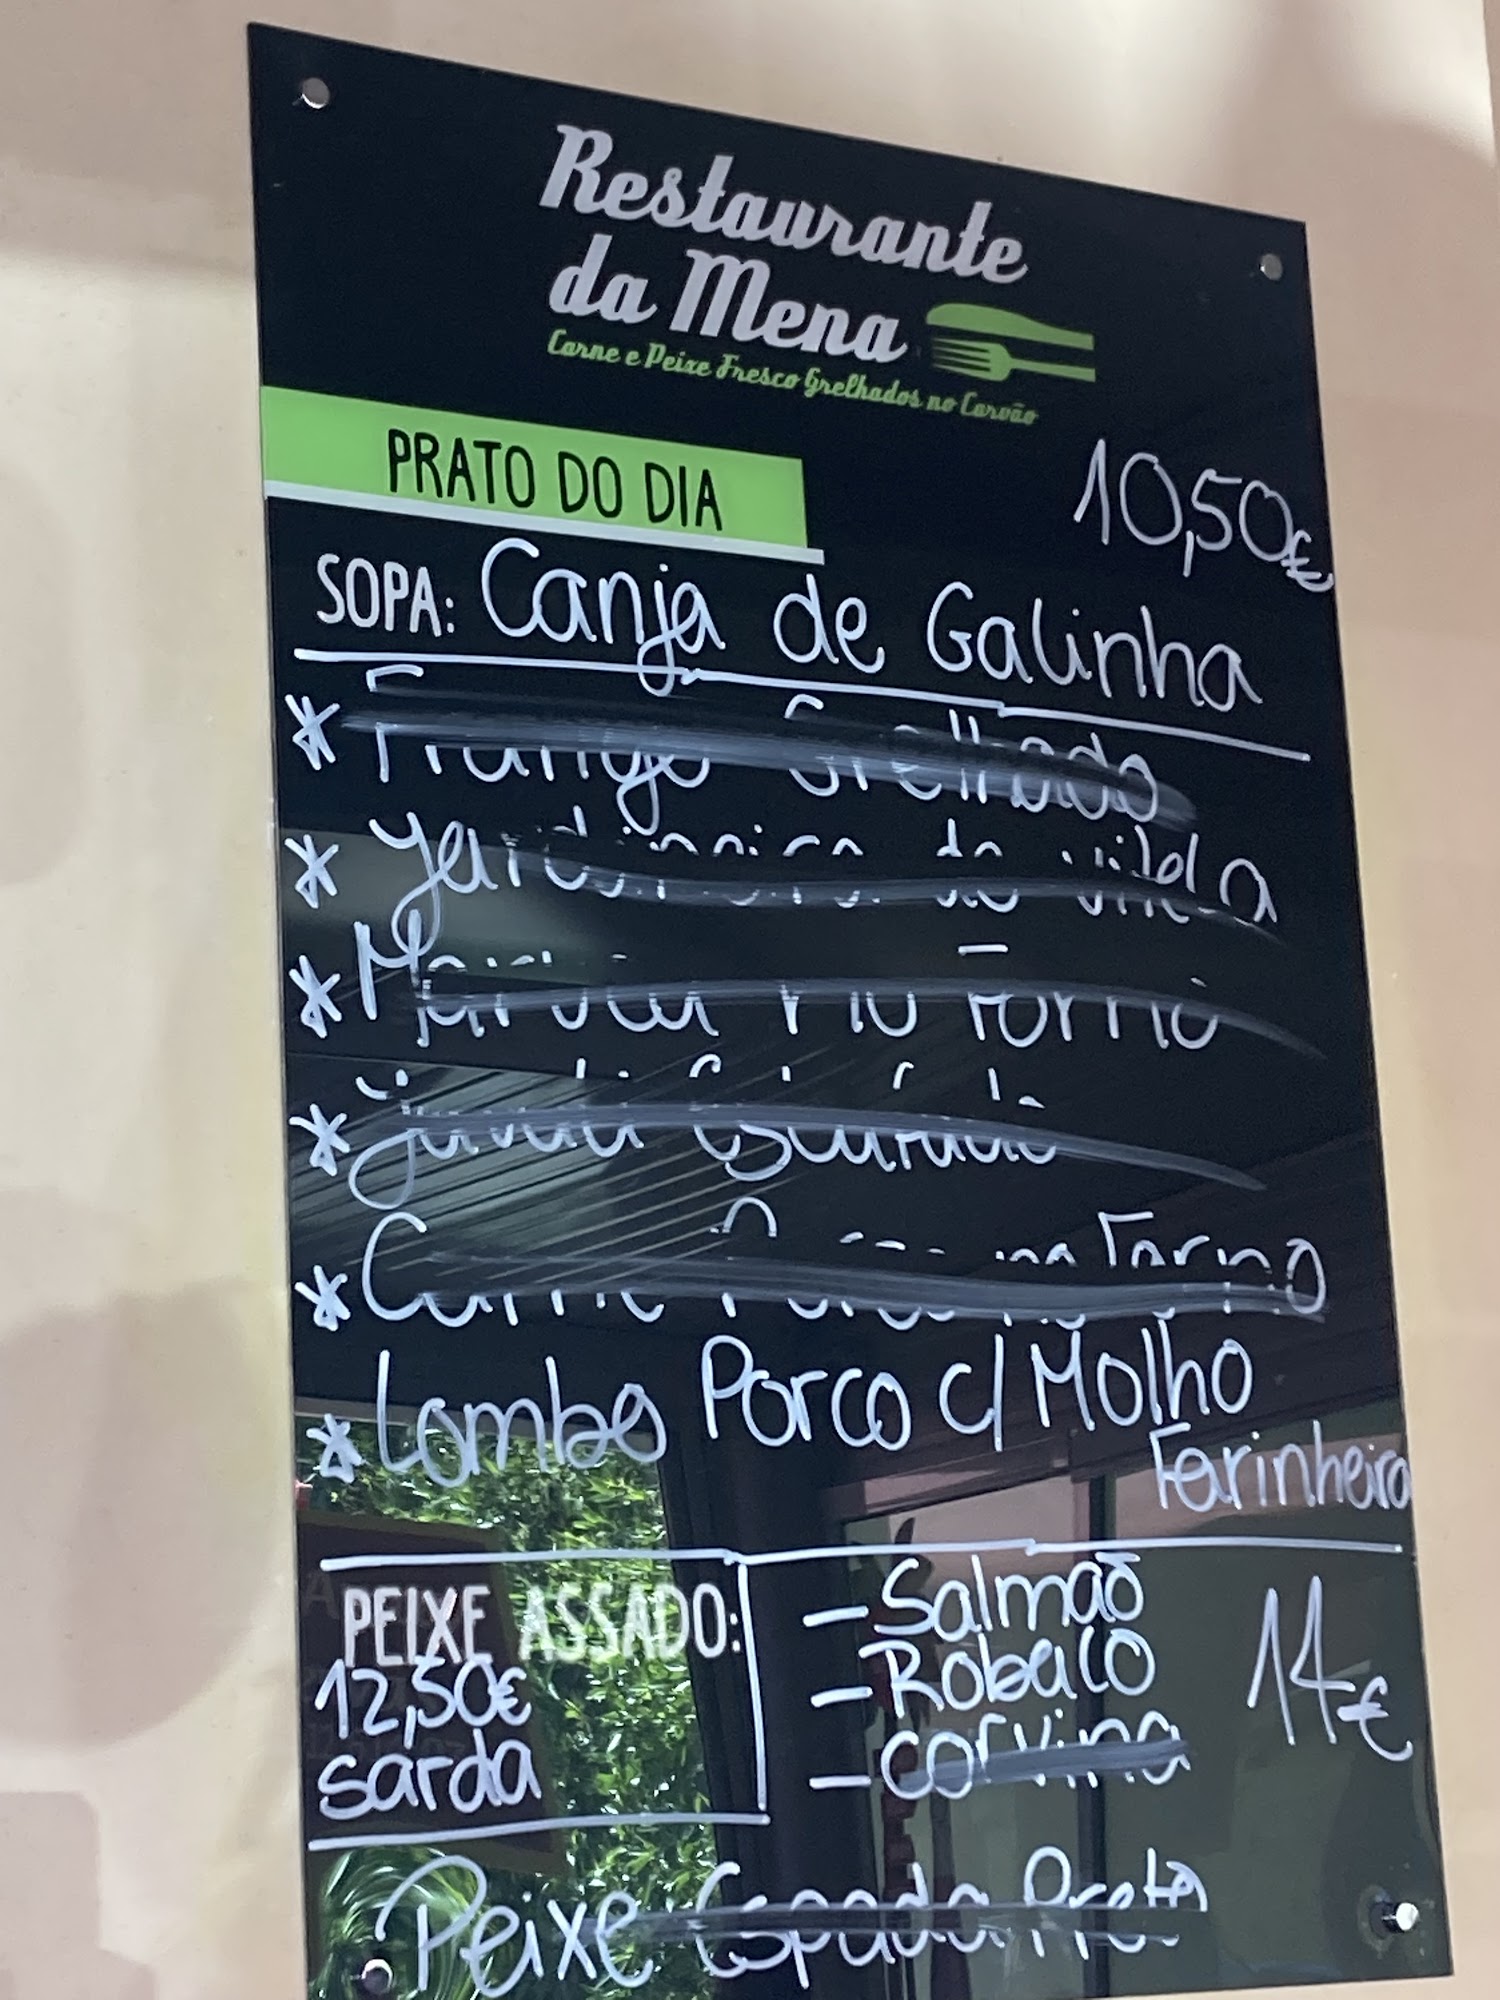 Restaurante
da Mena
Carne e Peixe Fresco Grelhados no Carvão
PRATO DO DIA
10,50€
SOPA: Canja de Galinha
* Frango Grelhado
* Jardineira de vitela
* no Forno
*
* Carne Porco no Forno
* Lombo Porco c/ Molho
Farinheira
PEIXE ASSADO:
12,50€
sarda
- Salmão
- Robalo
- corvina
14€
Peixe Espada Preto